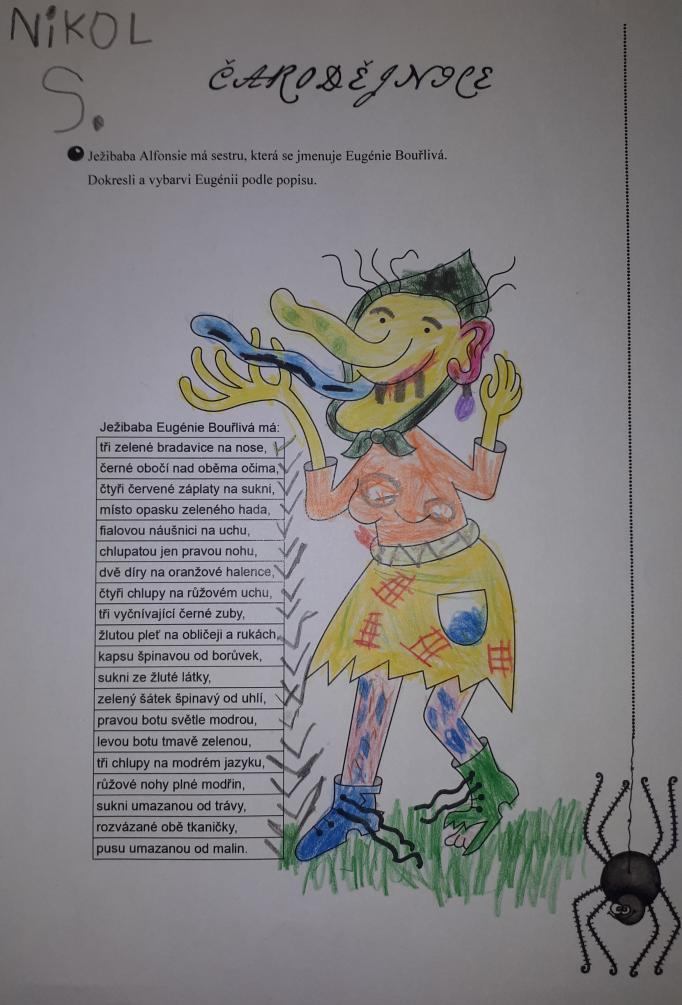 NIKOL
S.
ČARODĚJNICE
Ježibaba Alfonsie má sestru, která se jmenuje Eugénie Bouřlivá.
Dokresli a vybarvi Eugénii podle popisu.
Ježibaba Eugénie Bouřlivá má:
tři zelené bradavice na nose,
černé obočí nad oběma očima,
čtyři červené záplaty na sukni,
místo opasku zeleného hada,
fialovou náušnici na uchu,
chlupatou jen pravou nohu,
dvě díry na oranžové halence,
čtyři chlupy na růžovém uchu,
tři vyčnívající černé zuby,
žlutou pleť na obličeji a rukách,
kapsu špinavou od borůvek,
sukni ze žluté látky,
zelený šátek špinavý od uhlí,
pravou botu světle modrou,
levou botu tmavě zelenou,
tři chlupy na modrém jazyku,
růžové nohy plné modřin,
sukni umazanou od trávy,
rozvázané obě tkaničky,
pusu umazanou od malin.